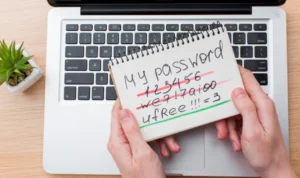 My password
123456
we717a100
ufRee!!!=3